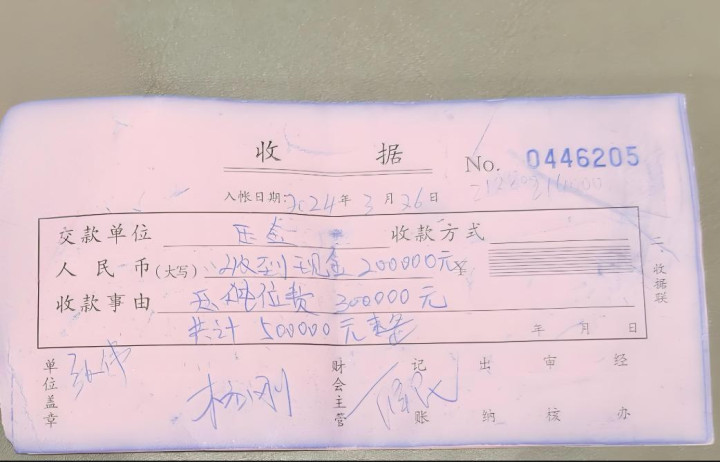 收 据
No. 0446205
入帐日期: 2024 年 3 月 26 日
交款单位 压金 收款方式
人民币(大写) 收到现金 200000元 ¥
收款事由 位费 300000 元
共计 500000 元
年 月 日
二、收据联
单位盖章 财会主管 记账 出纳 审核 经办
杨刚